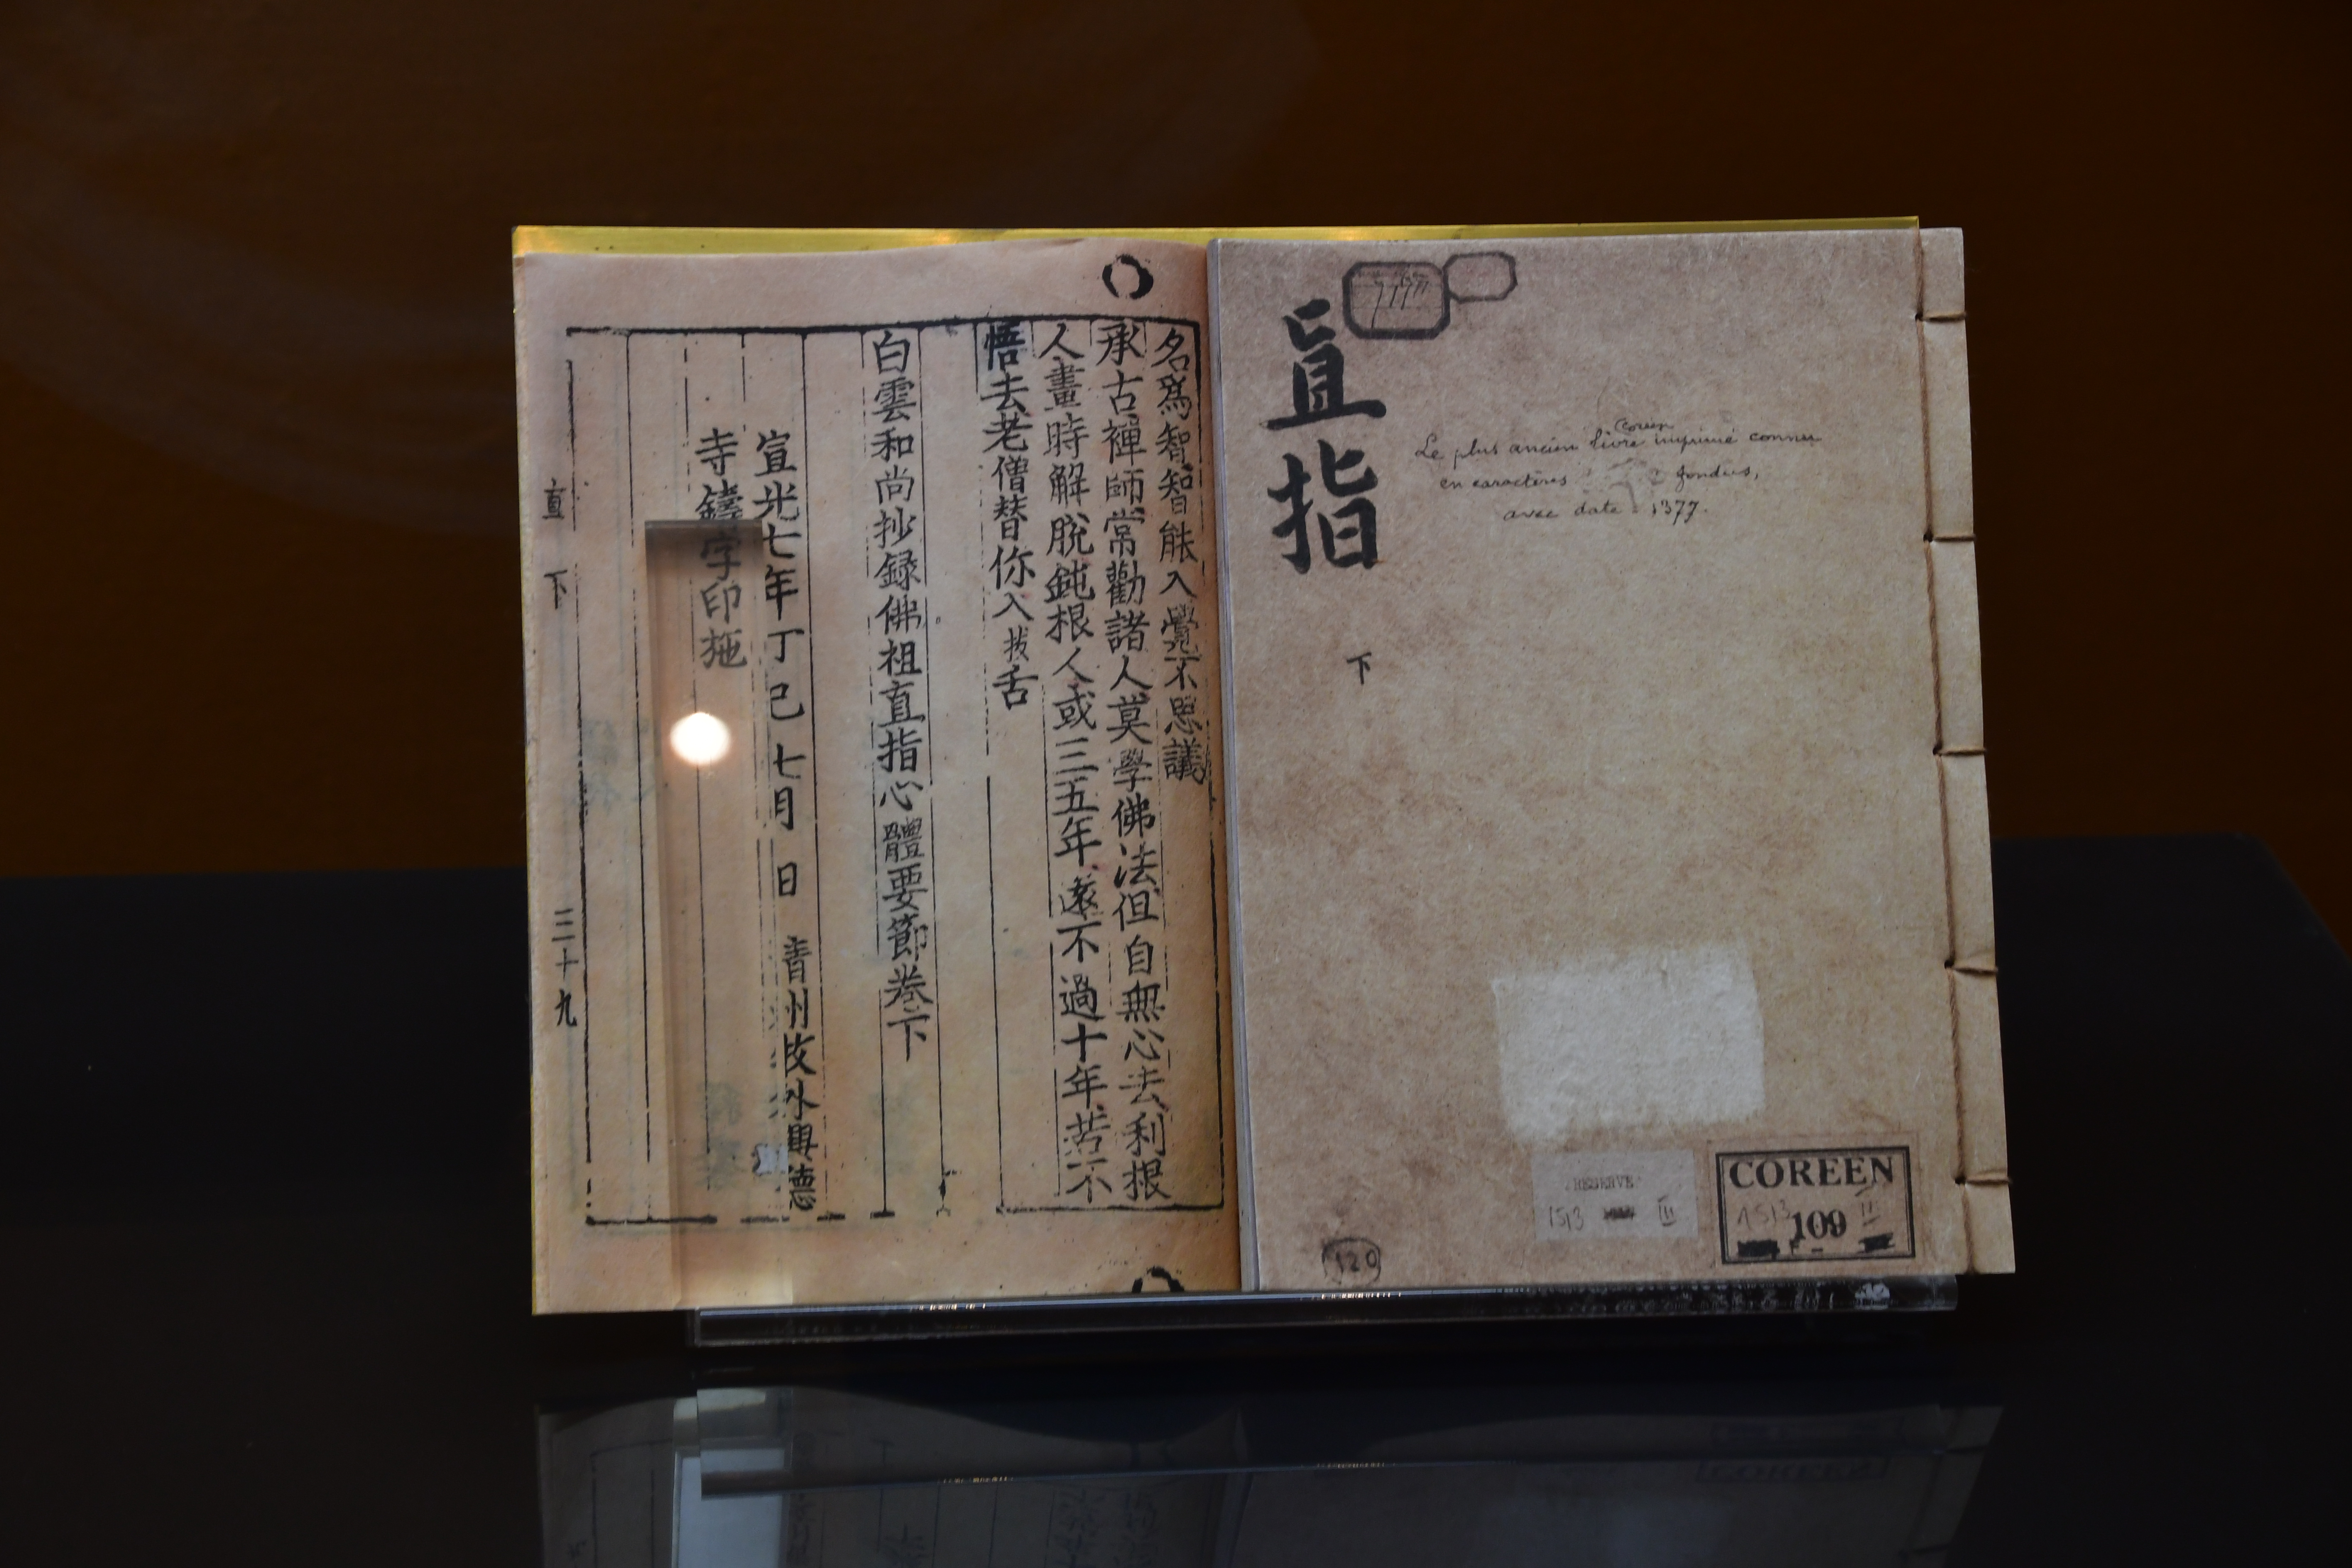 名爲智智能入覺不思議
承古禪師常勸諸人莫學佛法但自無心去利根
人畫時解脫鈍根人或三五年遠不過十年若不
悟去老僧替你入拔舌
白雲和尚抄録佛祖直指心體要節卷下
宣光七年丁巳七月 日 清州牧外興德
寺鑄字印施
直 下 三十九
直指
下
Coréen
Le plus ancien livre imprimé connu
en caractères fondus,
avec date 1377.
RESERVE
1513 III
COREEN
1513 II
109
120